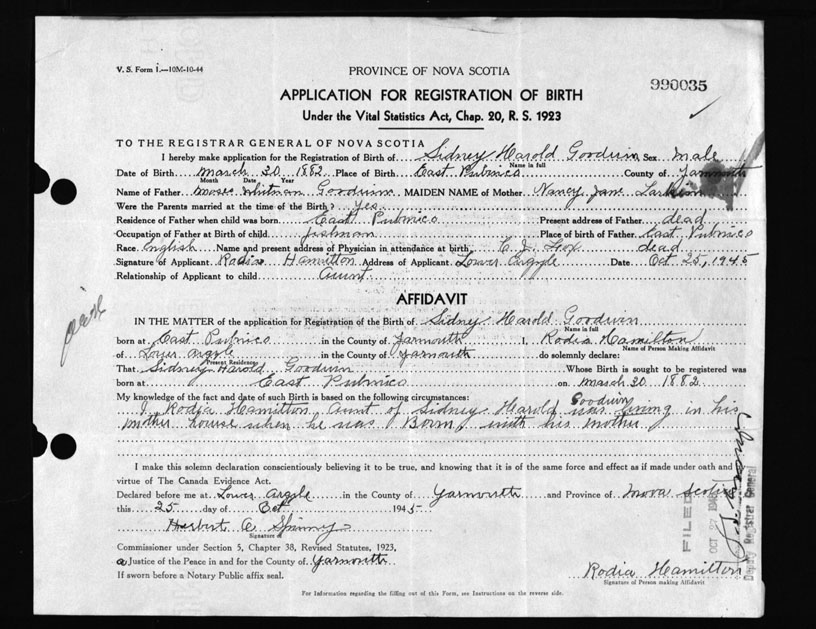 V. S. Form 1.—10M-10-44
PROVINCE OF NOVA SCOTIA
990035
APPLICATION FOR REGISTRATION OF BIRTH
Under the Vital Statistics Act, Chap. 20, R. S. 1923
TO THE REGISTRAR GENERAL OF NOVA SCOTIA
I hereby make application for the Registration of Birth of Sidney Harold Goodwin Sex male
Name in full
Date of Birth march 20 1882 Place of Birth East Pubnico County of Yarmouth
Month Date Year
Name of Father Moses Whitman Goodwin MAIDEN NAME of Mother Nancy Jane Larkin
Were the Parents married at the time of the Birth? yes
Residence of Father when child was born East Pubnico Present address of Father dead
Occupation of Father at Birth of child fishman Place of birth of Father East Pubnico
Race English Name and present address of Physician in attendance at birth C J Fox dead
Signature of Applicant Rodia Hamilton Address of Applicant Lower Argyle Date Oct 25, 1945
Relationship of Applicant to child Aunt
AFFIDAVIT
IN THE MATTER of the application for Registration of the Birth of Sidney Harold Goodwin
Name in full
born at East Pubnico in the County of Yarmouth I, Rodia Hamilton
Name of Person Making Affidavit
of Lower Argyle in the County of Yarmouth do solemnly declare:
Present Residence
That Sidney Harold Goodwin Whose Birth is sought to be registered was
born at East Pubnico on march 20 1882
My knowledge of the fact and date of such Birth is based on the following circumstances:
I Rodia Hamilton Aunt of Sidney Harold Goodwin was living in his
mother house when he was Born with his mother.
I make this solemn declaration conscientiously believing it to be true, and knowing that it is of the same force and effect as if made under oath and by
virtue of The Canada Evidence Act.
Declared before me at Lower Argyle in the County of Yarmouth and Province of Nova Scotia
this 25 day of Oct 1945
Herbert A Spinney
Signature of
Commissioner under Section 5, Chapter 38, Revised Statutes, 1923,
a Justice of the Peace in and for the County of Yarmouth
If sworn before a Notary Public affix seal.
Rodia Hamilton
Signature of Person making Affidavit
For Information regarding the filling out of this Form, see Instructions on the reverse side.
FILED
OCT 27
Deputy Registrar General